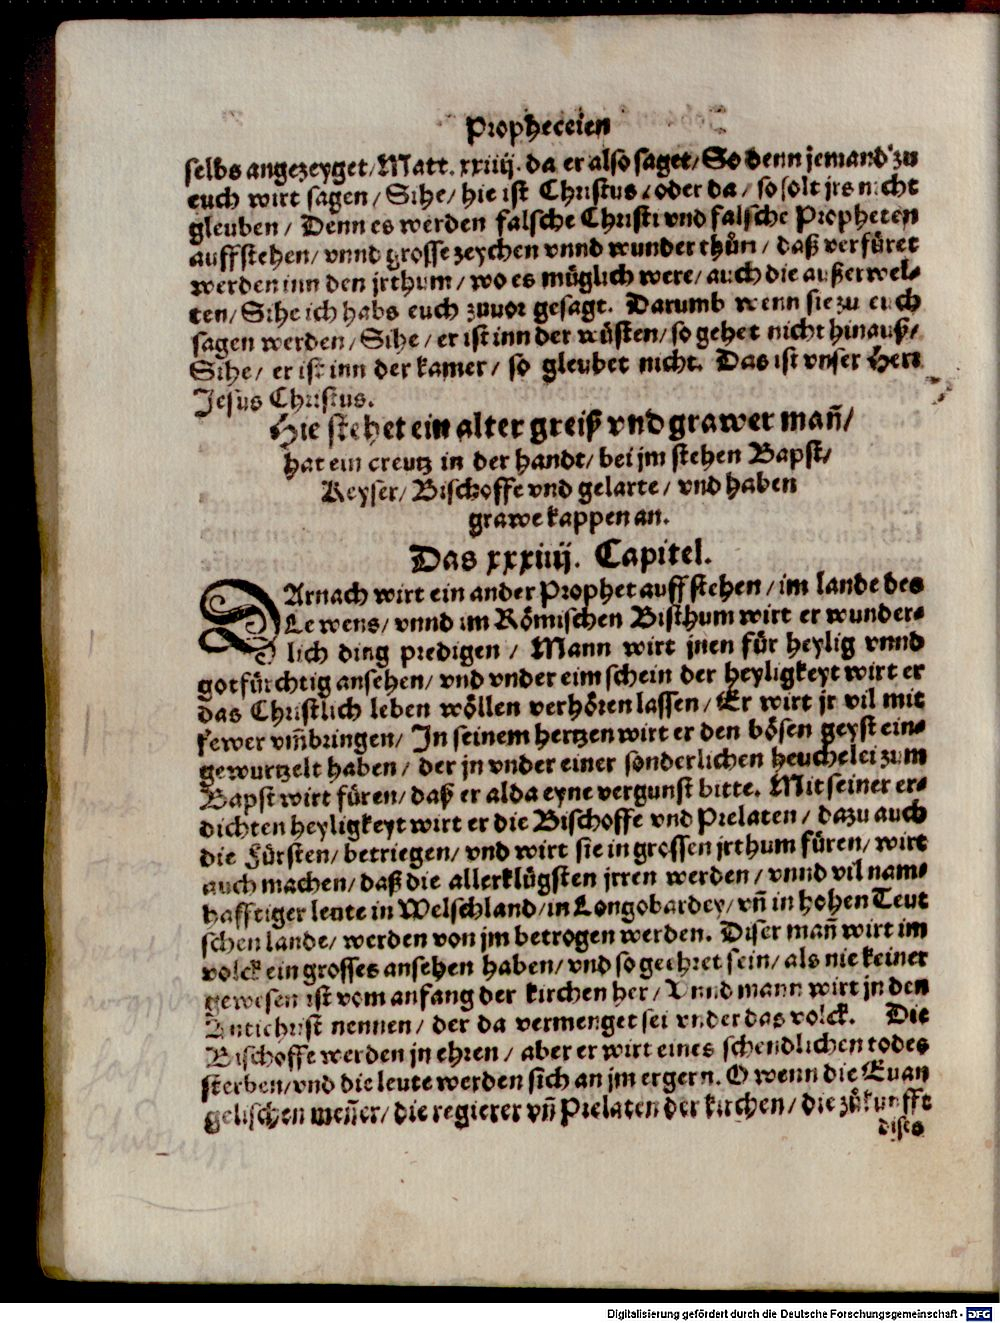 Propheceien
selbs angezeyget/ Matt. xxiiij. da er also saget/ So denn jemand zu
euch wirt sagen/ Sihe/ hie ist Christus/ oder da/ so solt jrs nicht
gleuben/ Denn es werden falsche Christi vnd falsche Propheten
auffstehen/ vnnd grosse zeychen vnnd wunder thůn/ daß verfüret
werden inn den jrthum/ wo es möglich were/ auch die außerwel-
ten/ Sihe ich habs euch zuuor gesagt. Darumb wenn sie zu euch
sagen werden/ Sihe/ er ist inn der wüsten/ so gehet nicht hinauß/
Sihe/ er ist inn der kamer/ so gleubet nicht. Das ist vnser Herr
Jesus Christus.
Hie stehet ein alter greiß vnd grawer mañ/
hat ein creutz in der handt/ bei jm stehen Bapst/
Keyser/ Bischoffe vnd gelarte/ vnd haben
grawe kappen an.
Das xxxiiij. Capitel.
DArnach wirt ein ander Prophet auffstehen/ im lande des
Lewens/ vnnd im Römischen Bisthum wirt er wunder-
lich ding predigen/ Mann wirt jnen für heylig vnnd
gotfürchtig ansehen/ vnd vnder eim schein der heyligkeyt wirt er
das Christlich leben wöllen verhören lassen/ Er wirt jr vil mit
fewer vm̃bringen/ In seinem hertzen wirt er den bösen geyst ein-
gewurtzelt haben/ der jn vnder einer sonderlichen heuchelei zum
Bapst wirt füren/ daß er alda eyne vergunst bitte. Mit seiner er-
dichten heyligkeyt wirt er die Bischoffe vnd Prelaten/ dazu auch
die Fürsten/ betriegen/ vnd wirt sie in grossen jrthum füren/ wirt
auch machen/ daß die allerklügsten jrren werden/ vnnd vil nam-
hafftiger leute in Welschland/ in Longobardey/ vñ in hohen Teut
schen lande/ werden von jm betrogen werden. Diser mañ wirt im
volck ein grosses ansehen haben/ vnd so geehret sein/ als nie keiner
gewesen ist vom anfang der kirchen her/ Vnnd mann wirt jn den
Antichrist nennen/ der da vermenget sei vnder das volck. Die
Bischoffe werden jn ehren/ aber er wirt eines schendlichen todes
sterben/ vnd die leute werden sich an jm ergern. O wenn die Euan
gelischen meñer/ die regierer vñ Prelaten der kirchen/ die zůkunfft
dises
Digitalisierung gefördert durch die Deutsche Forschungsgemeinschaft - DFG